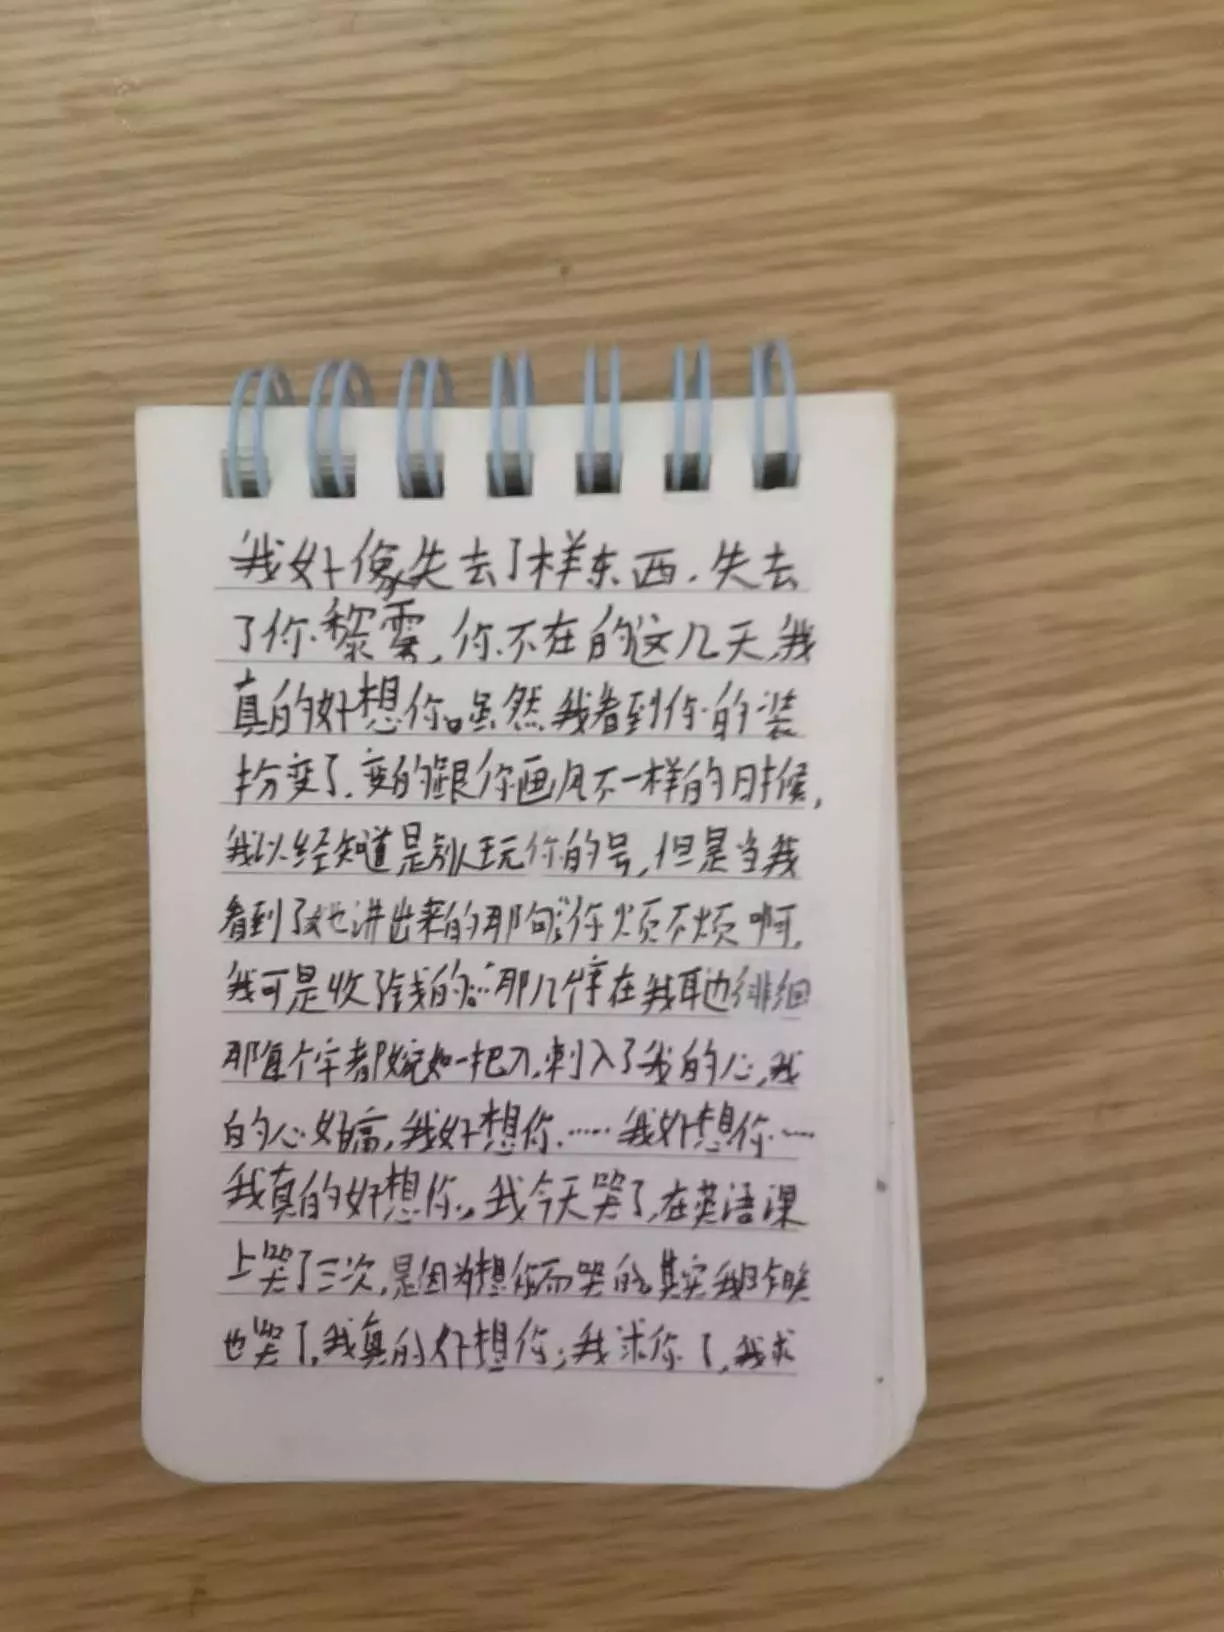 我好像失去了样东西.失去
了你黎霂,你不在的这几天,我
真的好想你。虽然我看到你的装
扮变了.变的跟你画风不一样的时候,
我以经知道是别人玩你的号,但是当我
看到了她讲出来的那句:你烦不烦啊.
我可是收了钱的……那几个字在我耳边徘徊
那每个字都婉如一把刀,刺入了我的心,我
的心好痛,我好想你……我好想你……
我真的好想你.,我今天哭了,在英语课
上哭了三次,是因为想你而哭的。其实我昨晚
也哭了.我真的好想你,我求你了,我求